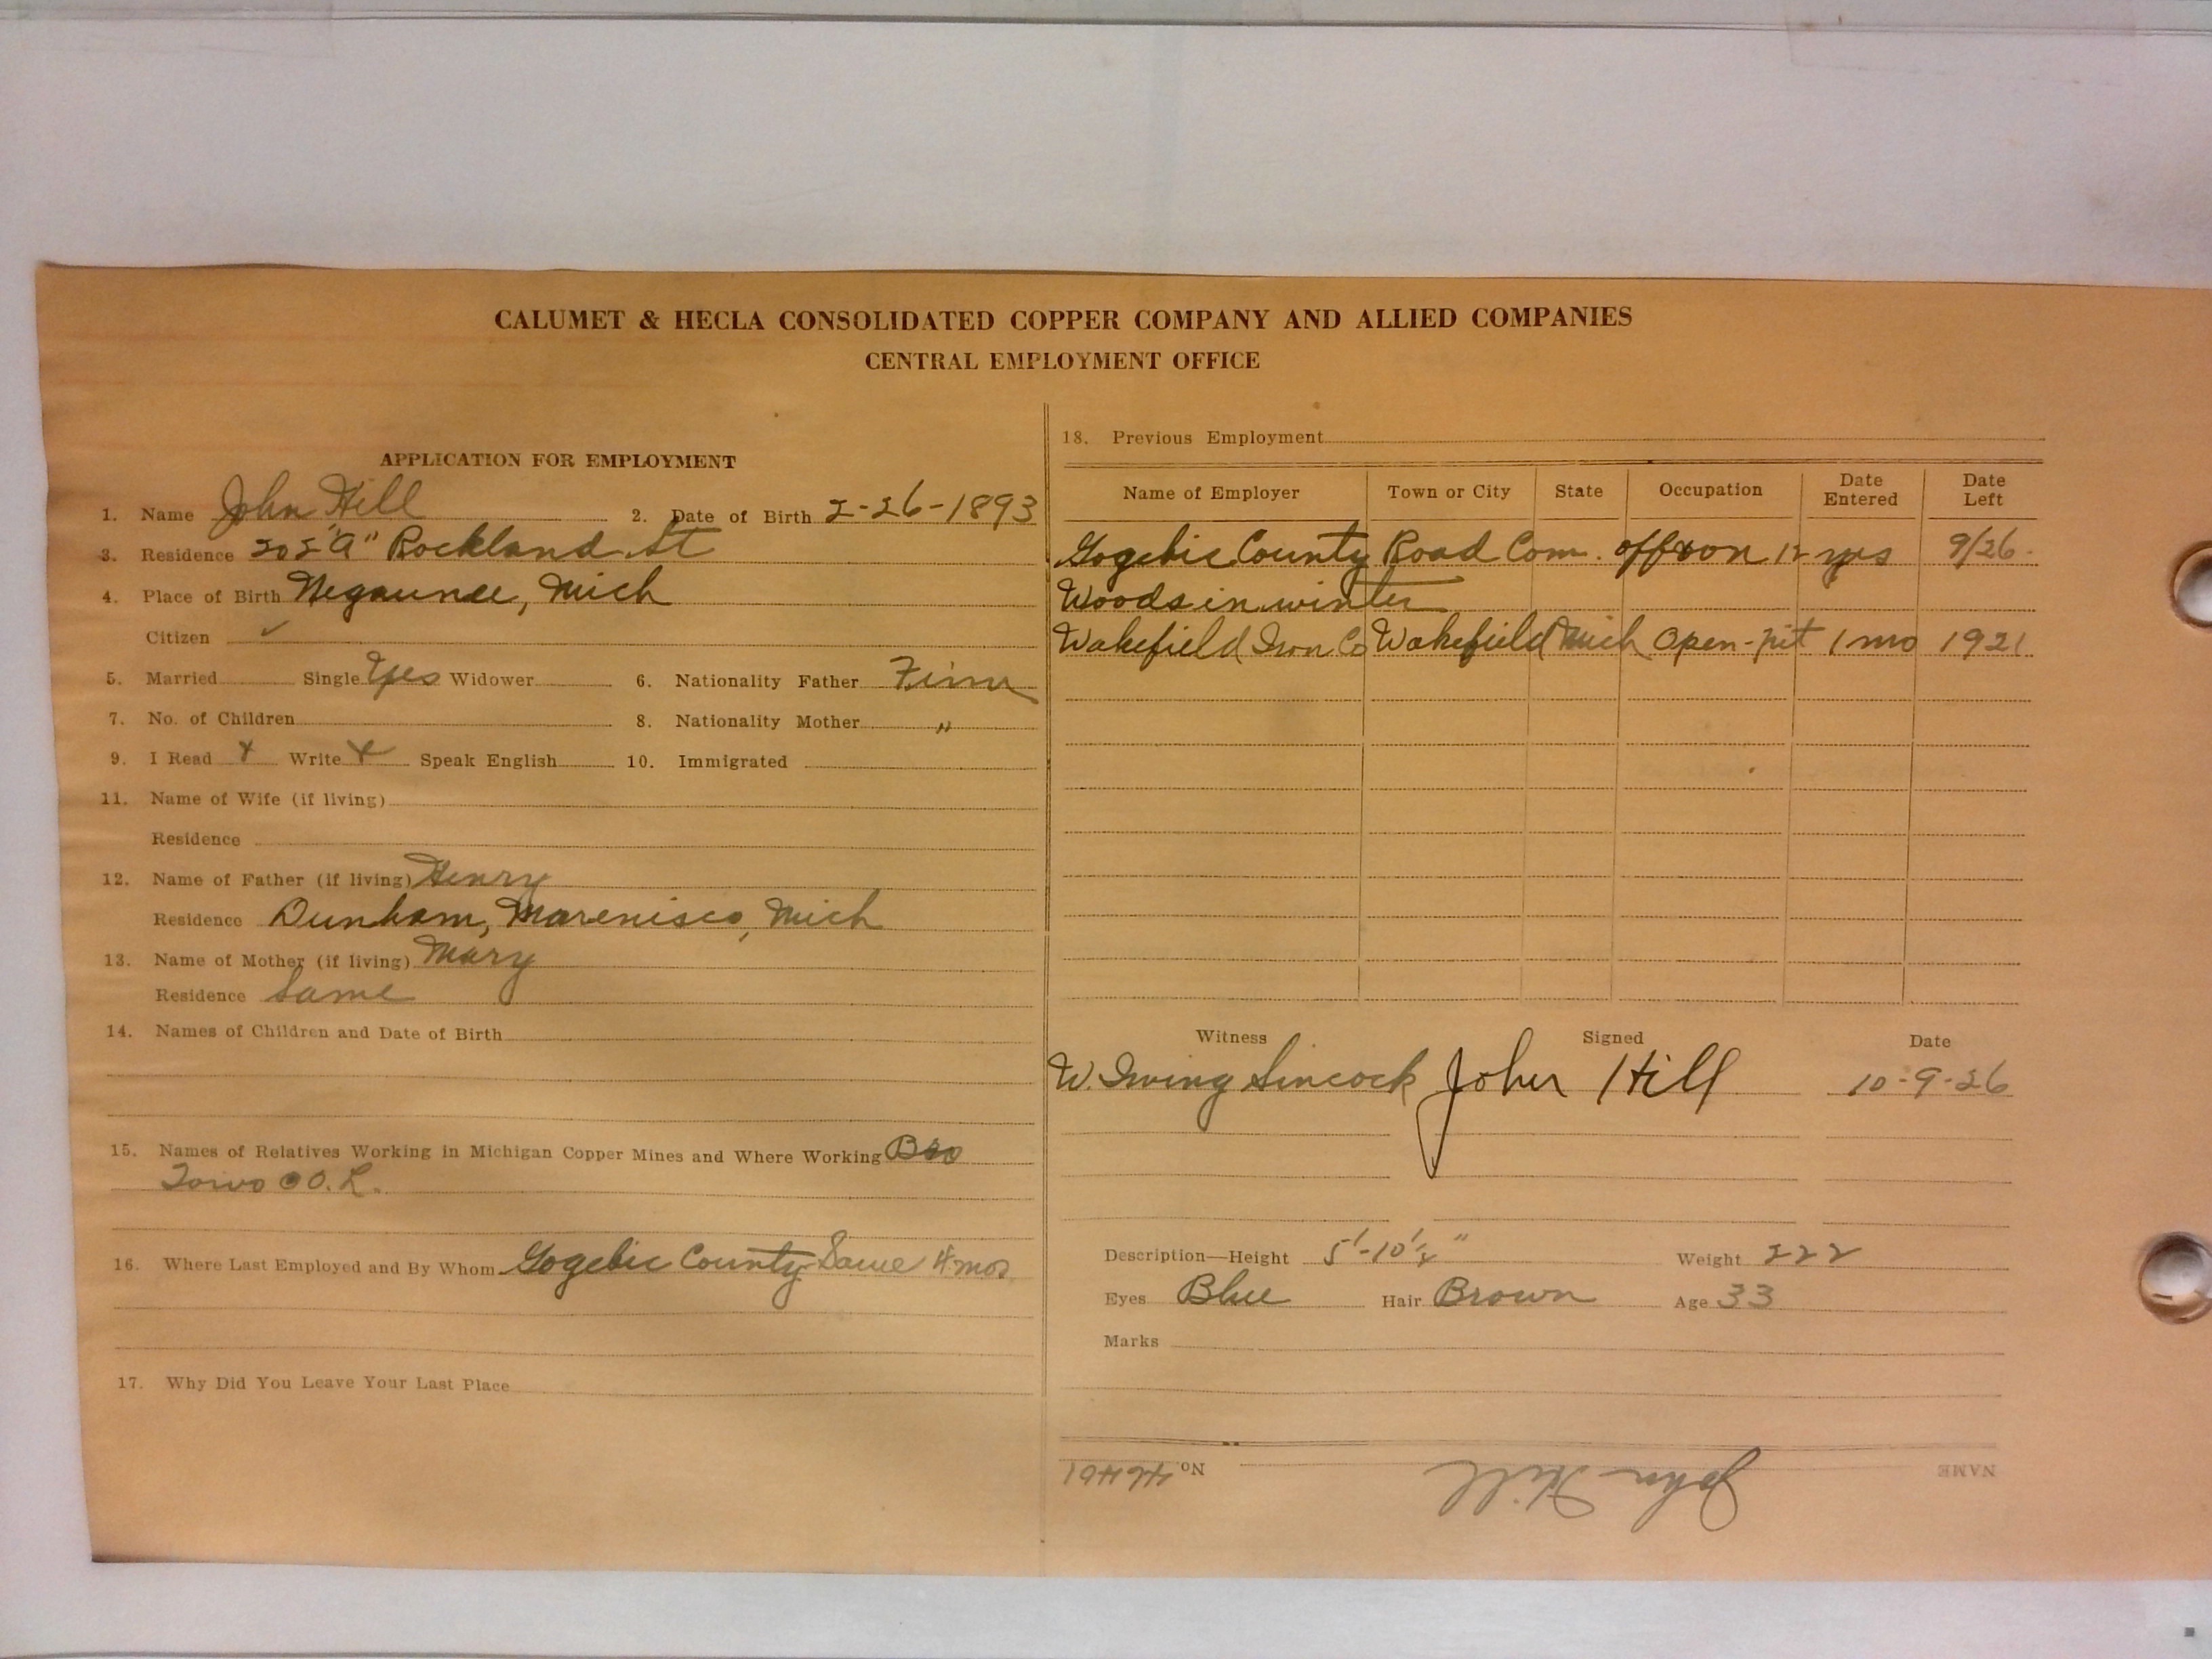 CALUMET & HECLA CONSOLIDATED COPPER COMPANY AND ALLIED COMPANIES
CENTRAL EMPLOYMENT OFFICE
APPLICATION FOR EMPLOYMENT
1. Name John Hill 2. Date of Birth 2-26-1893
3. Residence 202 "A" Rockland St
4. Place of Birth Negaunee, Mich
Citizen ✓
5. Married Single Yes Widower 6. Nationality Father Finn
7. No. of Children 8. Nationality Mother "
9. I Read x Write x Speak English 10. Immigrated
11. Name of Wife (if living)
Residence
12. Name of Father (if living) Henry
Residence Dunham, Marenisco, Mich
13. Name of Mother (if living) Mary
Residence Same
14. Names of Children and Date of Birth
15. Names of Relatives Working in Michigan Copper Mines and Where Working Bro
Toivo O.L.
16. Where Last Employed and By Whom Gogebic County Same 4 mos
17. Why Did You Leave Your Last Place
18. Previous Employment
Name of Employer Town or City State Occupation Date Entered Date Left
Gogebic County Road Com. off & on 12 yrs 9/26
Woods in winter
Wakefield Iron Co Wakefield Mich Open-pit 1 mo 1921
Witness Signed Date
W. Irving Sincock John Hill 10-9-26
Description—Height 5'-10 1/4" Weight 222
Eyes Blue Hair Brown Age 33
Marks
NAME John Hill No. 46461